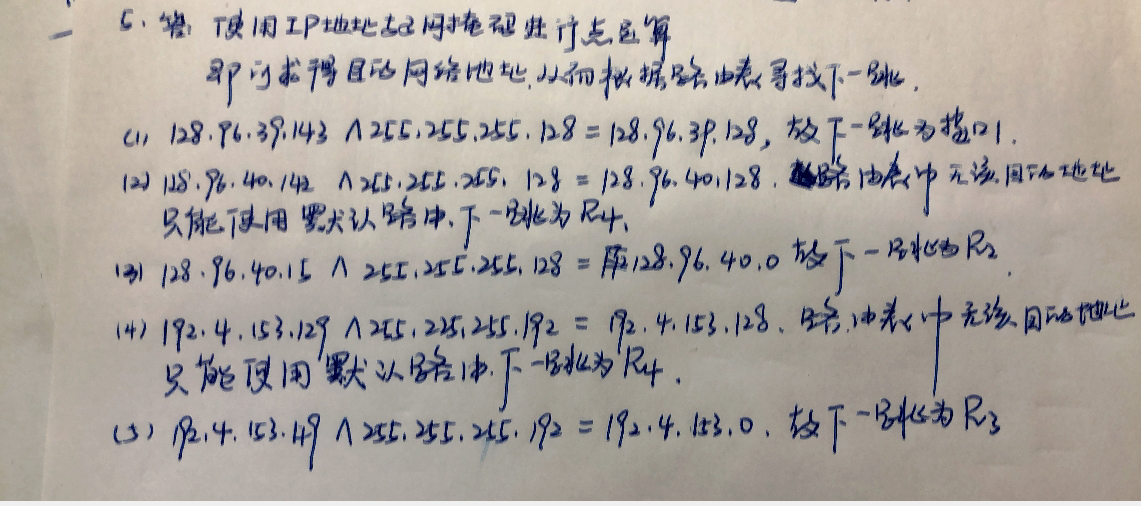 5. 答: 使用IP地址与网掩码进行点运算
即可求得目的网络地址,从而根据路由表寻找下一跳.
(1) 128.96.39.143 ∧ 255.255.255.128 = 128.96.39.128, 故下一跳为接口1.
(2) 128.96.40.142 ∧ 255.255.255.128 = 128.96.40.128. 路由表中无该目的地址
只能使用默认路由.下一跳为R4.
(3) 128.96.40.15 ∧ 255.255.255.128 = 128.96.40.0 故下一跳为R2.
(4) 192.4.153.129 ∧ 255.225.255.192 = 192.4.153.128. 路由表中无该目的地址
只能使用默认路由.下一跳为R4.
(5) 192.4.153.49 ∧ 255.255.255.192 = 192.4.153.0. 故下一跳为R3